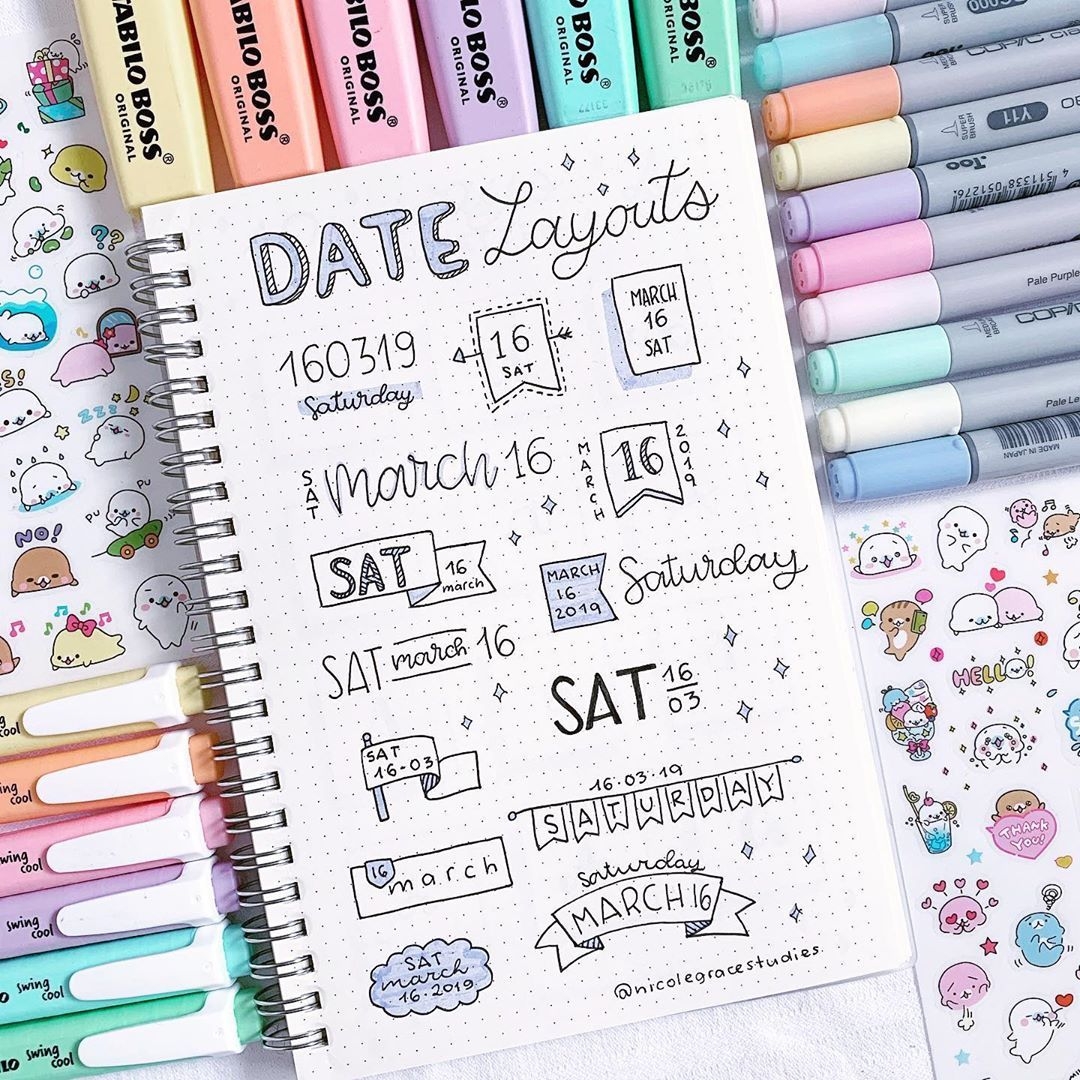 STABILO BOSS
ORIGINAL
STABILO BOSS
ORIGINAL
STABILO BOSS
ORIGINAL
STABILO BOSS
ORIGINAL
STABILO BOSS
ORIGINAL
STABILO BOSS
ORIGINAL
DATE Layouts
160319
Saturday
16
SAT
MARCH
16
SAT
SAT march 16
MARCH 16 2019
SAT 16
march
MARCH
16.
2019
Saturday
SAT march 16
SAT 16
03
SAT
16-03
16.03.19
SATURDAY
16 march
saturday
MARCH 16
SAT
march
16.2019
@nicolegracestudies
SUPER BRUSH
Y11
SUPER BRUSH
.Too
4 511338 051276
Pale Purple
MADE IN JAPAN
??
ZZZ
PU
PU
NO!
HELLO!
THANK YOU!
swing cool
swing cool
swing cool
swing cool
swing cool
swing cool